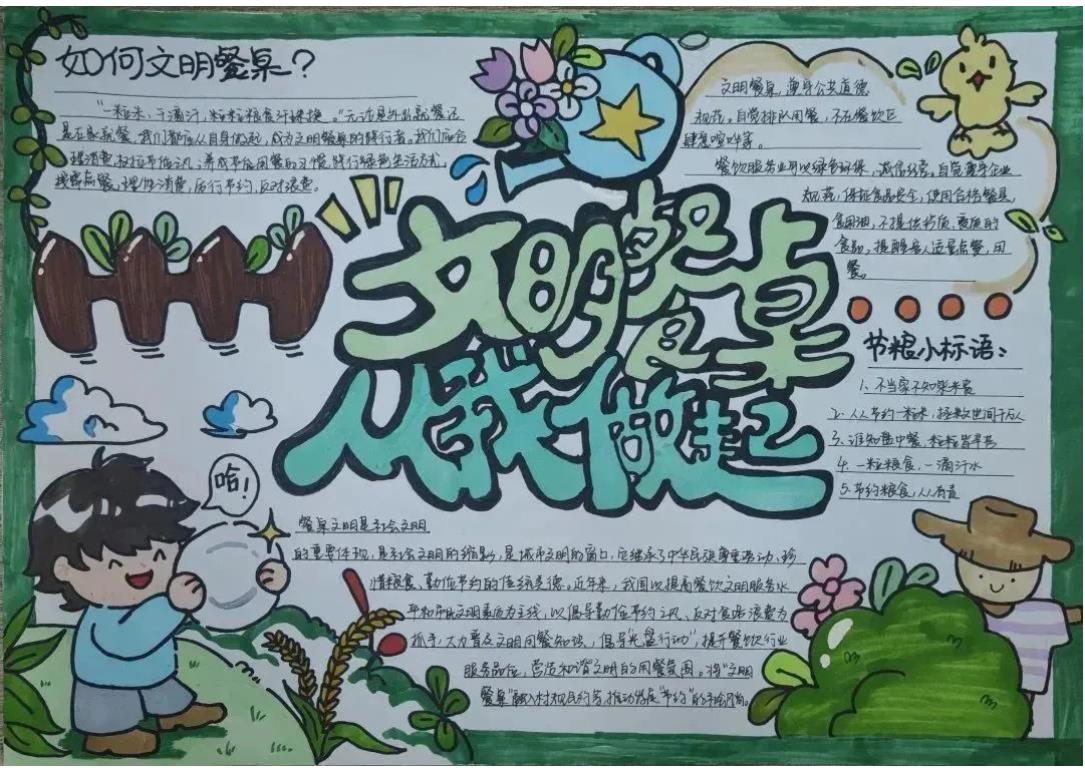 如何文明餐桌？
"一粒米，千滴汗，粒粒粮食汗珠换。"无论是外出就餐还
是在家就餐，我们都应从自身做起，成为文明餐桌的践行者。我们应合
理消费，拉拉节俭之风，养成节俭用餐的习惯，践行绿色生活方式，
按需点餐，理性消费，厉行节约，反对浪费。
文明餐桌，遵守公共道德
规范，自觉排队用餐，不在餐饮区
肆意喧哗等。
餐饮服务业可以绿色环保，诚信经营，自觉遵守企业
规范，保证食品安全，使用合格餐具，
食用油，不提供劣质、变质的
食品，提醒客人适量点餐，用
餐。
文明餐桌
从我做起
节粮小标语：
1、不当家不知柴米贵
2、人人节约一粒米，拯救世间千万人
3、谁知盘中餐，粒粒皆辛苦
4、一粒粮食，一滴汗水
5、节约粮食，人人有责
哈！
餐桌文明是社会文明
的重要体现，是社会文明的缩影，是城市文明的窗口，它继承了中华民族尊重劳动、珍
惜粮食、勤俭节约的传统美德。近年来，我国以提高餐饮文明服务水
平和市民文明素质为主线，以倡导勤俭节约之风、反对食品浪费为
抓手，大力普及文明用餐知识，倡导"光盘行动"，提升餐饮行业
服务品位，营造和谐文明的用餐氛围。将"文明
餐桌"融入村规民约等，推动发展"节约"的